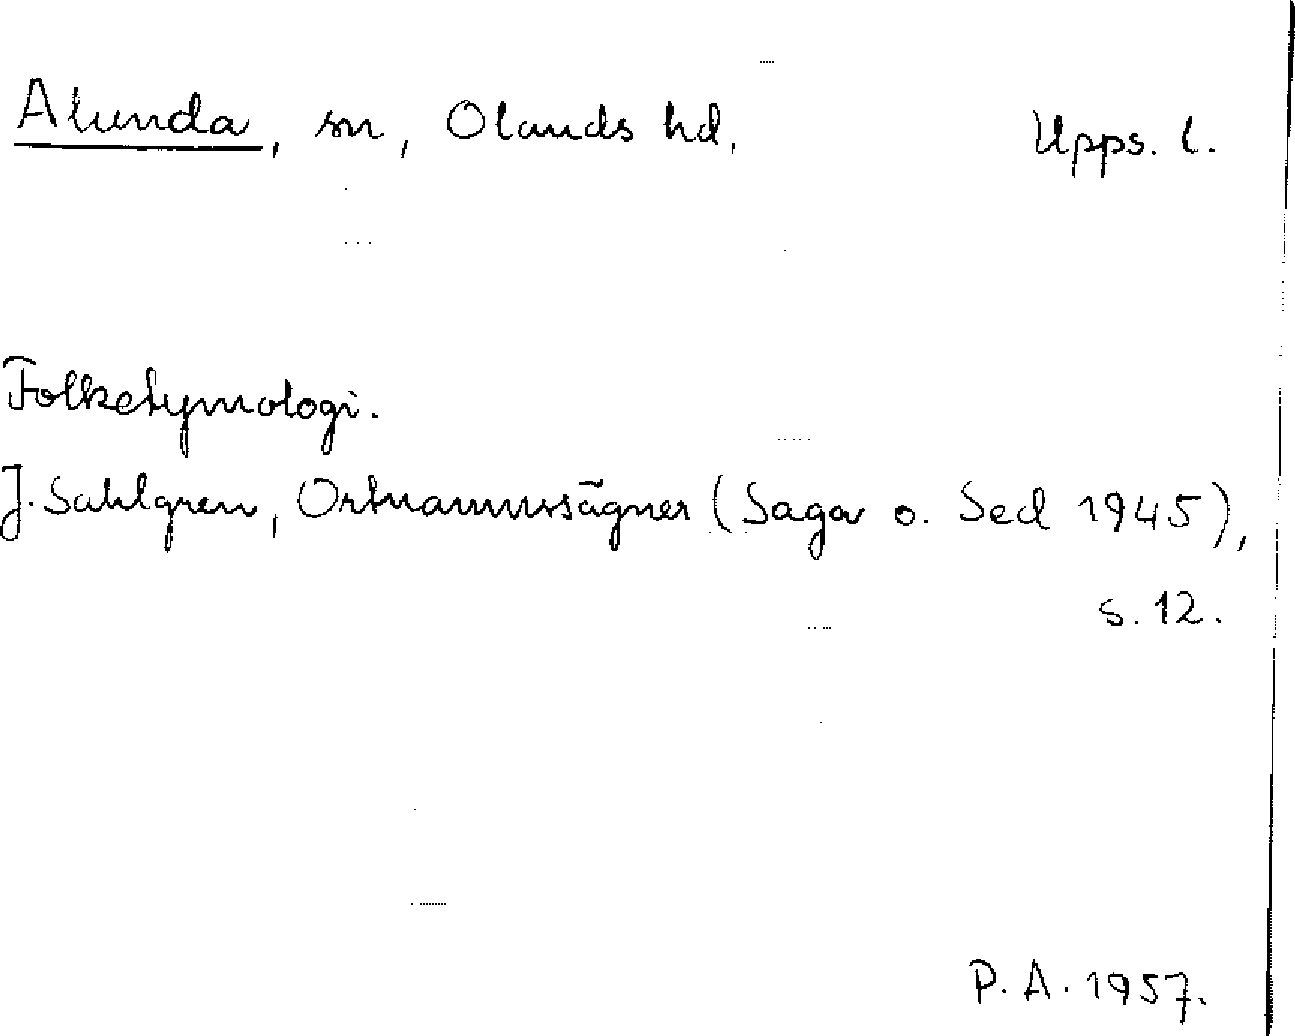 Alunda, sn, Olands hd, Upps. l.
Folketymologi.
J. Sahlgren, Ortnamnssägner (Saga o. Sed 1945),
s. 12.
P. A. 1957.